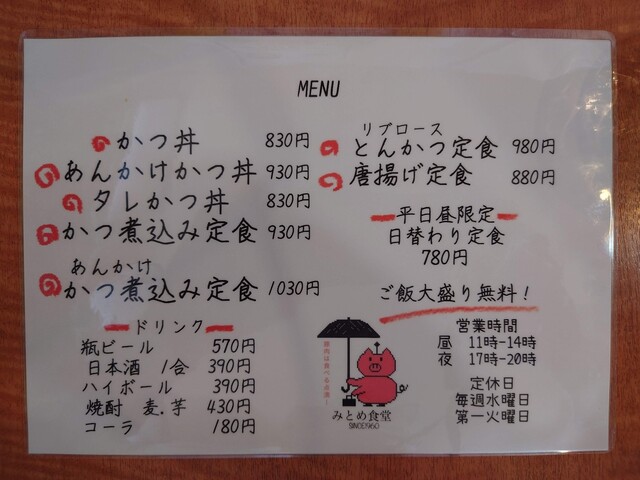 MENU
かつ丼 830円
あんかけかつ丼 930円
タレかつ丼 830円
かつ煮込み定食 930円
あんかけ
かつ煮込み定食 1030円
ドリンク
瓶ビール 570円
日本酒 1合 390円
ハイボール 390円
焼酎 麦.芋 430円
コーラ 180円
リブロース
とんかつ定食 980円
唐揚げ定食 880円
平日昼限定
日替わり定食
780円
ご飯大盛り無料!
営業時間
昼 11時-14時
夜 17時-20時
定休日
毎週水曜日
第一火曜日
みとめ食堂
SINCE1960